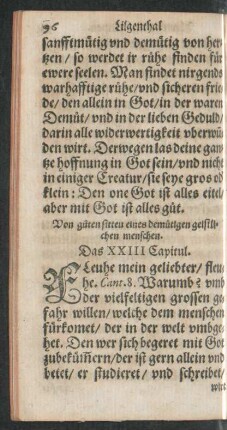 96 Lilgenthal
sanfftmütig vnd demütig von her-
tzen/ so werdet ir rühe finden für
ewere seelen. Man findet nirgends
warhafftige rühe/ vnd sicheren frid-
de/ den allein in Got/ in der waren
Demüt/ vnd in der lieben Gedult/
darin alle widerwertigkeit vberwü-
den wirt. Derwegen las deine gan-
tze hoffnung in Got sein/ vnd nicht
in einiger Creatur/ sie seye gros od
klein: Den one Got ist alles eitel/
aber mit Got ist alles güt.
Von güten sitten eines demütigen geistli-
chen menschen.
Das XXIII Capitul.
FLeuhe mein geliebter/ fleu-
he. Cant. 8. Warumb? vmb
der vielfeltigen grossen ge-
fahr willen/ welche dem menschen
fürkomet/ der in der welt vmbge-
het. Den wer sich begeret mit Got
zubekümern/ der ist gern allein vnd
betet/ er studieret/ vnd schreibet/
wirt